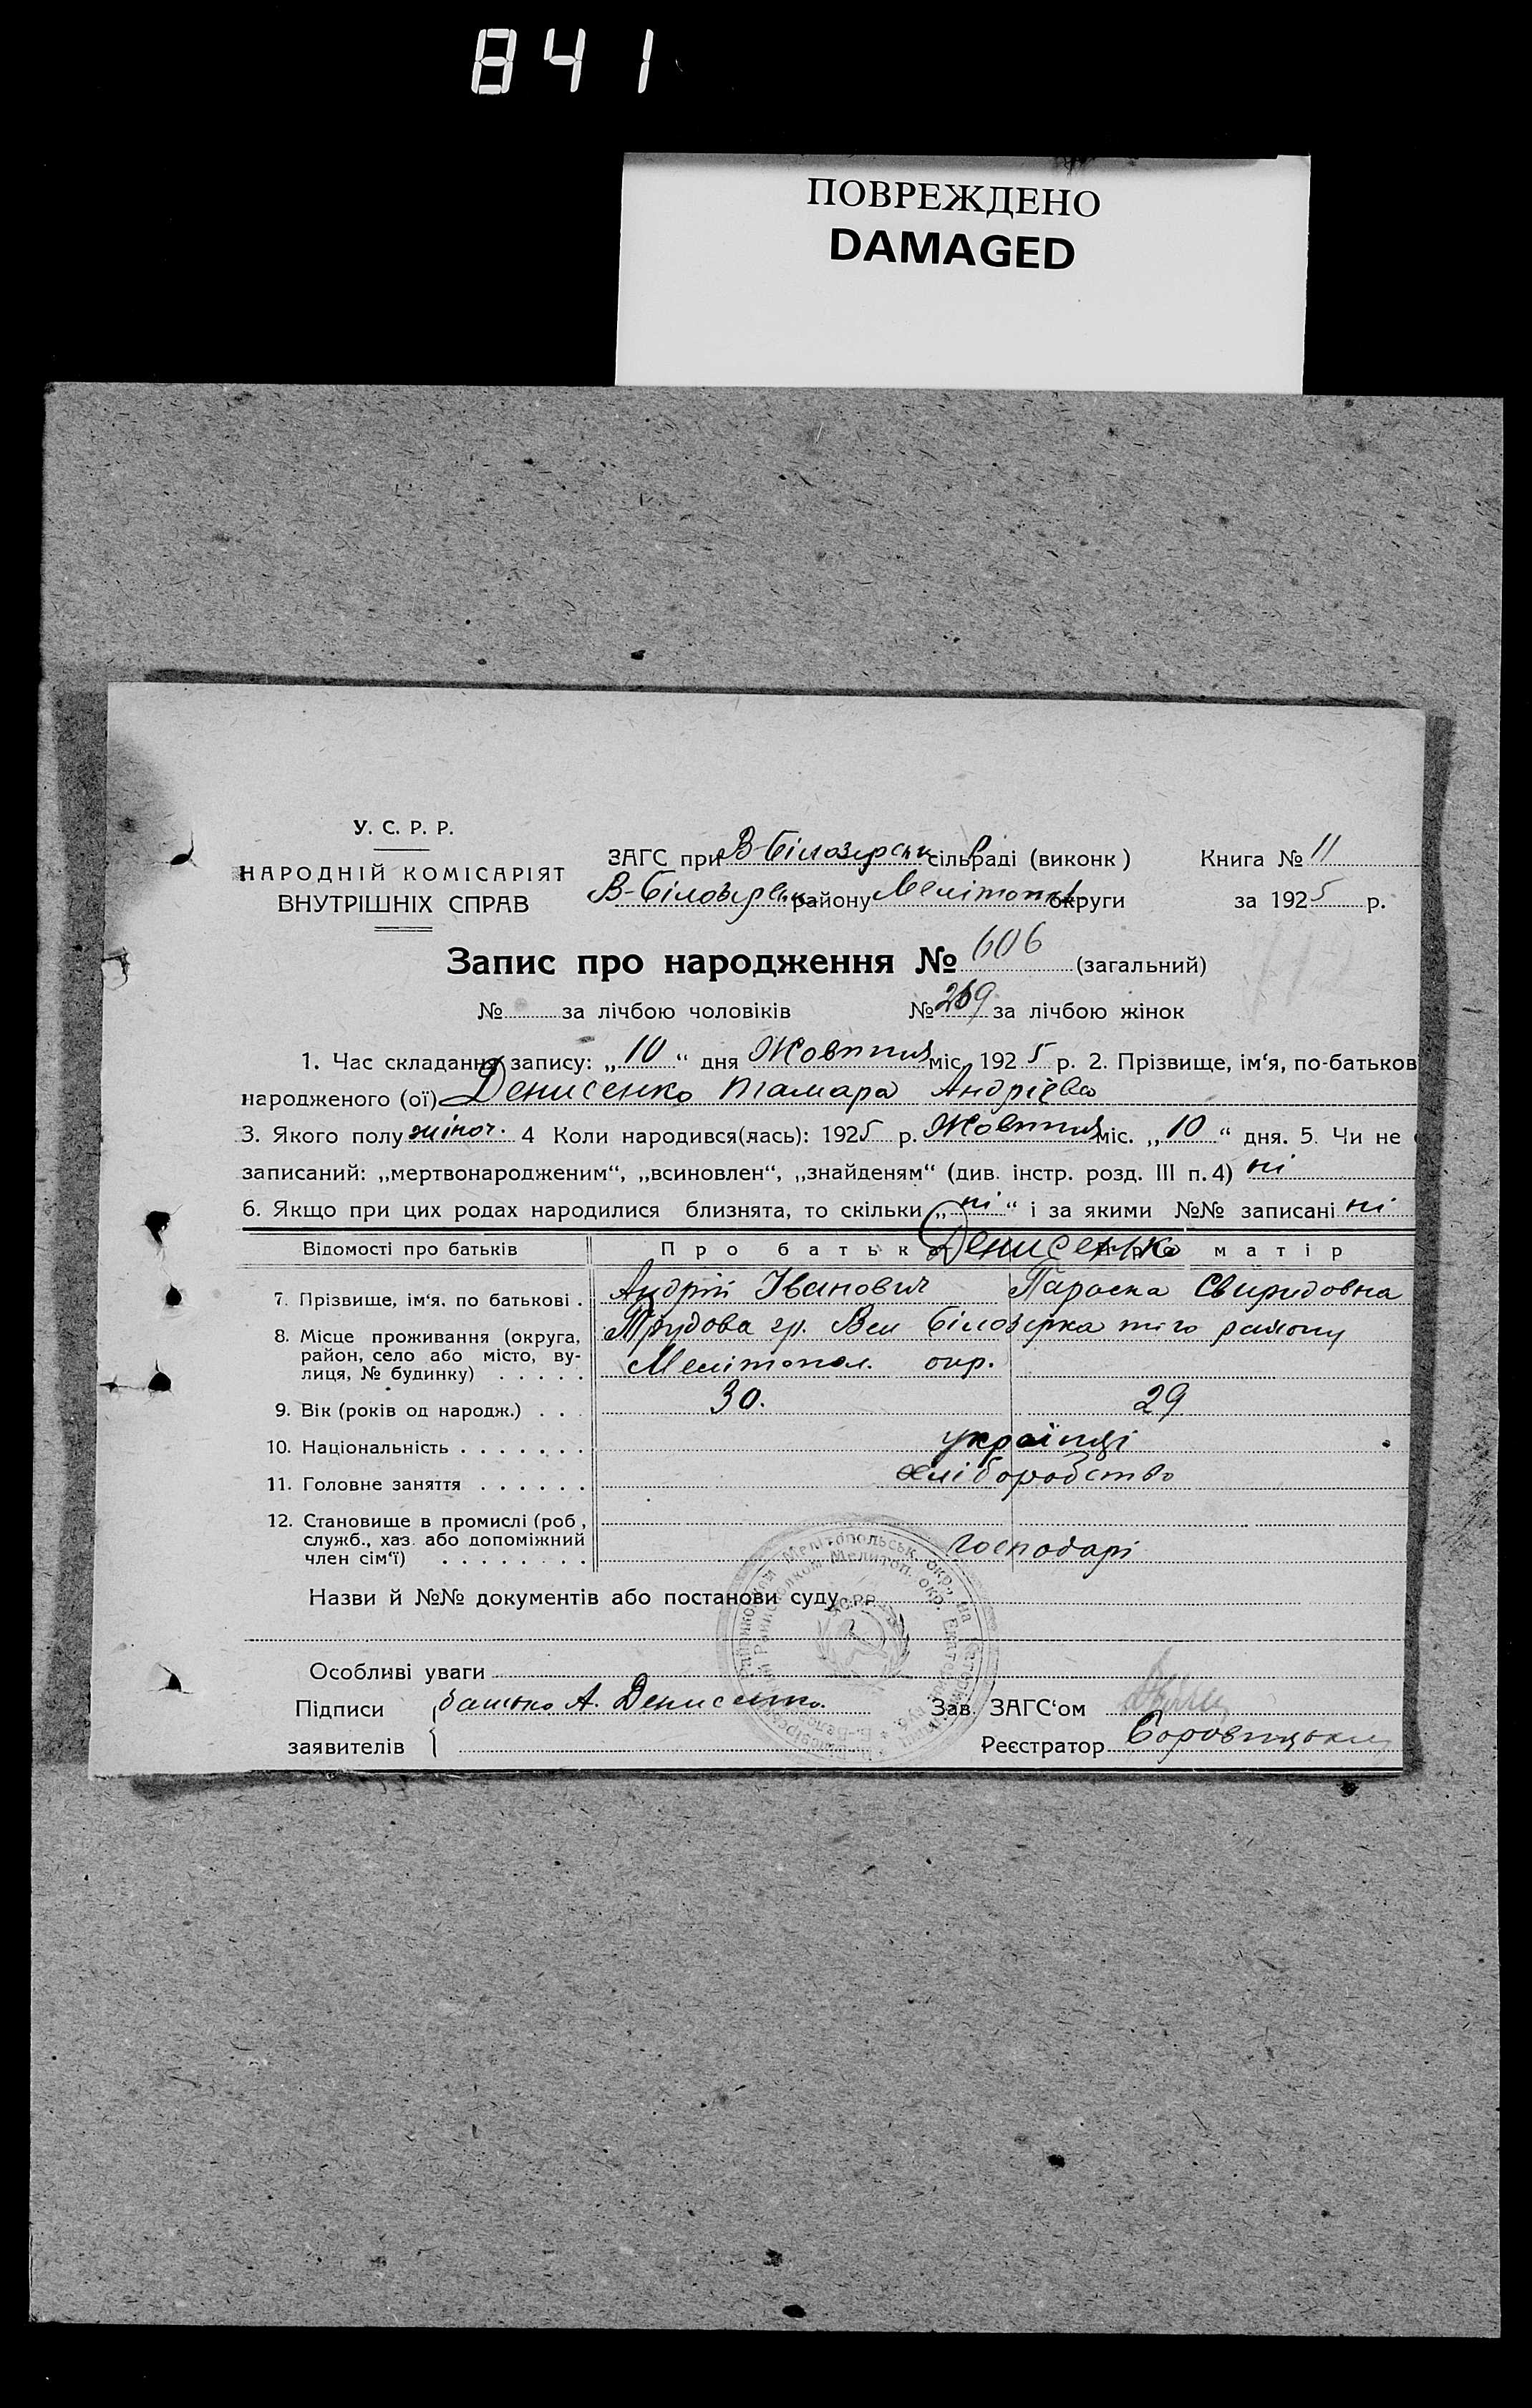 841
ПОВРЕЖДЕНО
DAMAGED
У. С. Р. Р.
НАРОДНІЙ КОМІСАРІЯТ
ВНУТРІШНІХ СПРАВ
ЗАГС при В-Білозірськ сільраді (виконк) Книга № 11
В-Білозірськ району Мелітопол округи за 1925 р.
Запис про народження № 606 (загальний)
№ за лічбою чоловіків № 269 за лічбою жінок
1. Час складання запису: „10“ дня Жовтня міс. 1925 р. 2. Прізвище, ім‘я, по-батьков
народженого (ої) Денисенко Тамара Андрієва
3. Якого полу жіноч. 4 Коли народився(лась): 1925 р. Жовтня міс. „10“ дня. 5. Чи не
записаний: „мертвонародженим“, „всиновлен“, „знайденям“ (див. інстр. розд. III п. 4) ні
6. Якщо при цих родах народилися близнята, то скільки „ні“ і за якими №№ записані ні
Відомості про батьків Про батька Денисенко матір
7. Прізвище, ім‘я, по батькові . Андрій Іванович Параска Свиридовна
8. Місце проживання (округа, Трудова гр. Вел Білозірка того району
район, село або місто, ву-
лиця, № будинку) . . . . . Мелітопол. окр.
9. Вік (років од народж.) . . . 30. 29
10. Національність . . . . . . . українці
11. Головне заняття . . . . . . хліборобство
12. Становище в промислі (роб,
служб., хаз. або допоміжний
член сім‘ї) . . . . . . . . господарі
Назви й №№ документів або постанови суду
Особливі уваги
Підписи батько А. Денисенко. Зав. ЗАГС‘ом
заявителів Реєстратор Боровицький